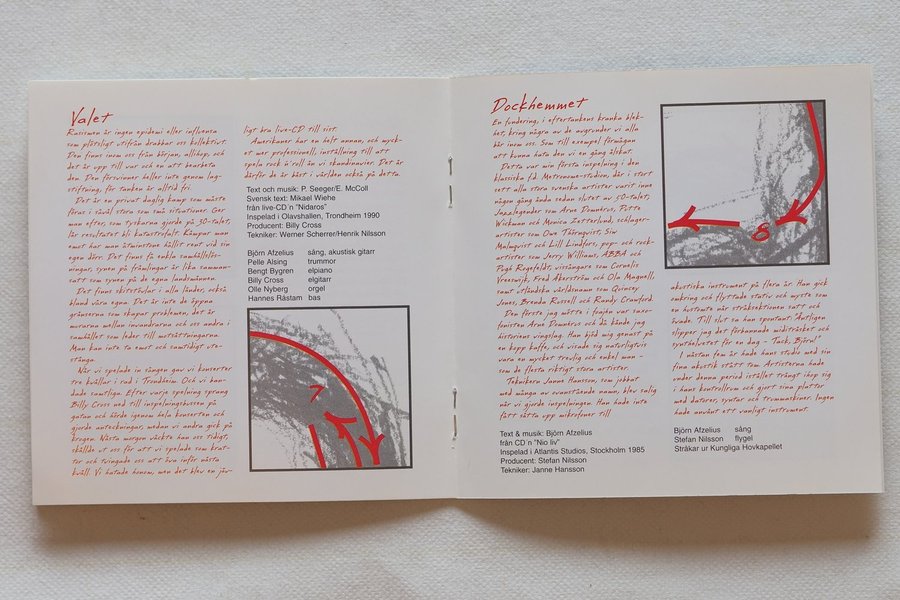 Valet
Rasismen är ingen epidemi eller influensa
som plötsligt utifrån drabbar oss kollektivt.
Den finns inom oss från början, allihop, och
det är upp till var och en att bearbeta
den. Den försvinner heller inte genom lag-
stiftning, för tanken är alltid fri.
Det är en privat daglig kamp som måste
föras i såväl stora som små situationer. Ger
man efter, som tyskarna gjorde på 30-talet,
blir resultatet bli katastrofalt. Kämpar man
emot har man åtminstone hållit rent vid sin
egen dörr. Det finns få enkla samhällslös-
ningar, synen på främlingar är lika samman-
satt som synen på de egna landsmännen.
Det finns skitstövlar i alla länder, också
bland våra egna. Det är inte de öppna
gränserna som skapar problemen, det är
murarna mellan invandrarna och oss andra i
samhället som leder till motsättningarna.
Man kan inte ta emot och samtidigt ute-
stänga.
När vi spelade in sången gav vi konserter
tre kvällar i rad i Trondheim. Och vi ban-
dade samtliga. Efter varje spelning sprang
Billy Cross ned till inspelningsbussen på
gatan och hörde igenom hela konserten och
gjorde anteckningar, medan vi andra gick på
krogen. Nästa morgon väckte han oss tidigt,
skällde ut oss för att vi spelade som krat-
tor och tvingade oss att öva inför nästa
kväll. Vi hatade honom, men det blev en jäv-
ligt bra live-CD till sist.
Amerikaner har en helt annan, och myck-
et mer professionell, inställning till att
spela rock'n'roll än vi skandinaver. Det är
därför de är bäst i världen också på detta.
Text och musik: P. Seeger/E. McColl
Svensk text: Mikael Wiehe
från live-CD´n "Nidaros"
Inspelad i Olavshallen, Trondheim 1990
Producent: Billy Cross
Tekniker: Werner Scherrer/Henrik Nilsson
Björn Afzelius sång, akustisk gitarr
Pelle Alsing trummor
Bengt Bygren elpiano
Billy Cross elgitarr
Olle Nyberg orgel
Hannes Råstam bas
7
Dockhemmet
En fundering, i eftertankens kranka blek-
het, kring några av de avgrunder vi alla
bär inom oss. Som till exempel förmågan
att kunna hata den vi en gång älskat.
Detta var min första inspelning i den
klassiska f.d. Metronome-studion, där i stort
sett alla stora svenska artister varit inne
någon gång ända sedan slutet av 50-talet.
Jazzlegender som Arne Domnérus, Putte
Wickman och Monica Zetterlund, schlager-
artister som Owe Thörnqvist, Siw
Malmqvist och Lill Lindfors, pop- och rock-
artister som Jerry Williams, ABBA och
Pugh Rogefeldt, vissångare som Cornelis
Vreeswijk, Fred Åkerström och Ola Magnell,
samt utländska världsnamn som Quincey
Jones, Brenda Russell och Randy Crawford.
Den förste jag mötte i foajén var saxo-
fonisten Arne Domnérus och då kände jag
historiens vingslag. Han bjöd mig genast på
en kopp kaffe, och visade sig naturligtvis
vara en mycket trevlig och enkel man -
som de flesta riktigt stora artister.
Teknikern Janne Hansson, som jobbat
med många av ovanstående namn, blev salig
när vi gjorde inspelningen. Han hade inte
fått sätta upp mikrofoner till
Text & musik: Björn Afzelius
från CD´n "Nio liv"
Inspelad i Atlantis Studios, Stockholm 1985
Producent: Stefan Nilsson
Tekniker: Janne Hansson
8
akustiska instrument på flera år. Han gick
omkring och flyttade stativ och myste som
en hustomte när stråksektionen satt och
övade. Till slut sa han spontant: Äntligen
slipper jag det förbannade miditräsket och
synthelvetet för en dag - Tack, Björn!"
I nästan fem år hade hans studio med sin
fina akustik stått tom. Artisterna hade
under denna period istället trängt ihop sig
i hans kontrollrum och gjort sina plattor
med datorer, syntar och trummaskiner. Ingen
hade använt ett vanligt instrument.
Björn Afzelius sång
Stefan Nilsson flygel
Stråkar ur Kungliga Hovkapellet